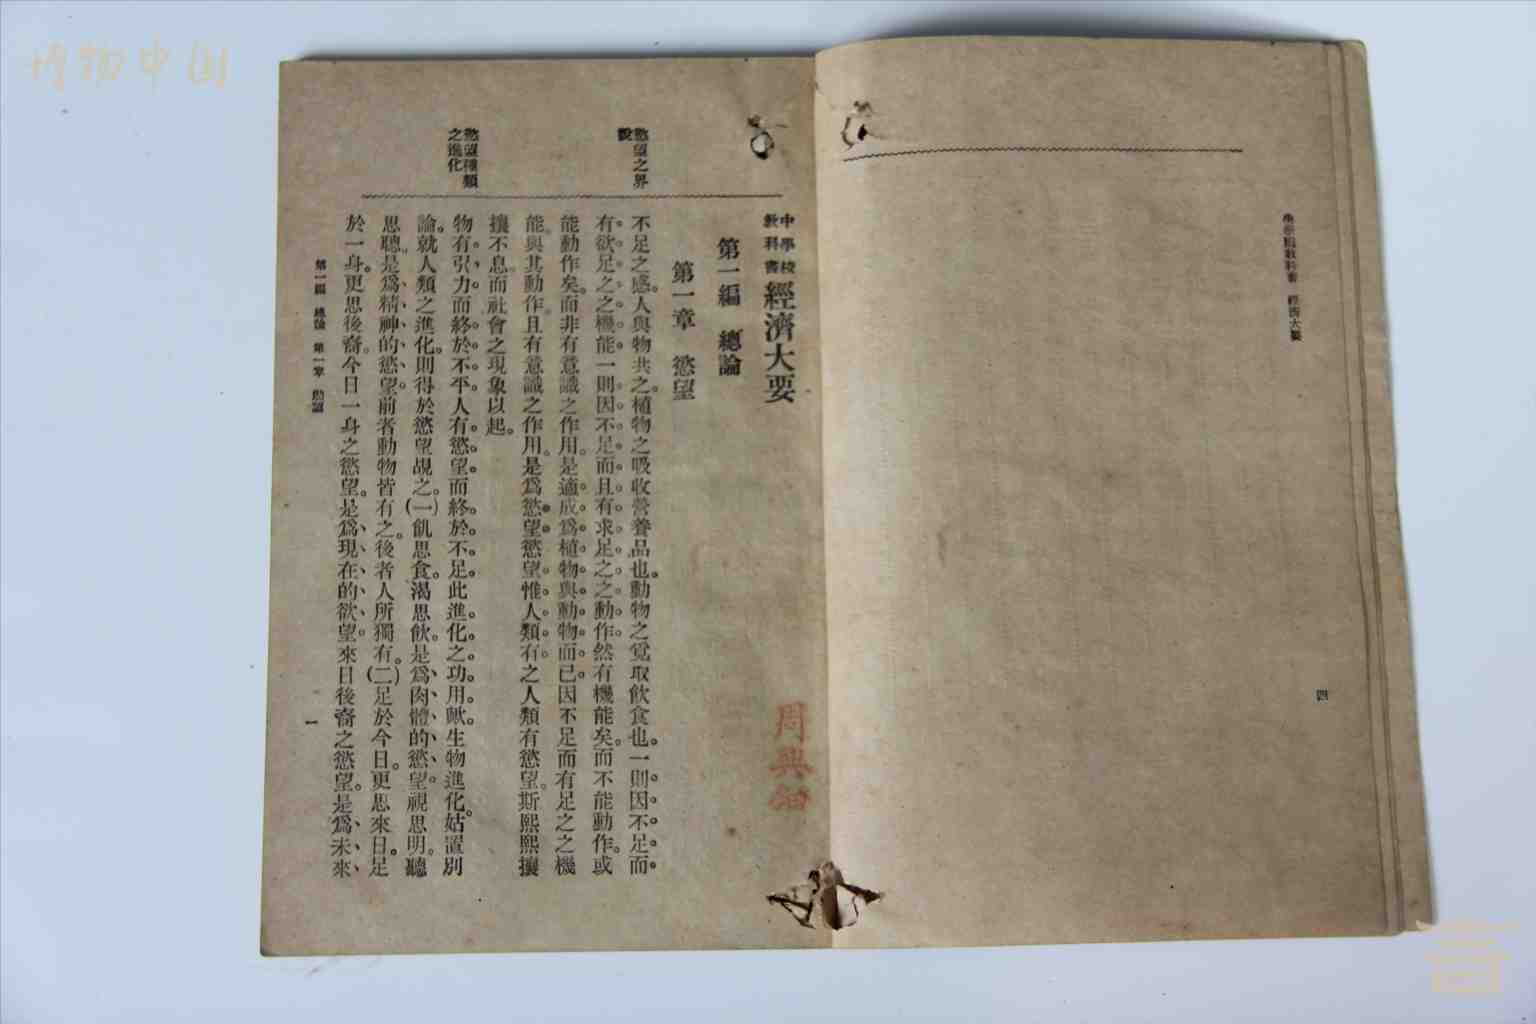 博物中国
中學校教科書 經濟大要
四
中學校
教科書 經濟大要
第一編 總論
第一章 慾望
慾望之界
說
不足之感。人與物共之。植物之吸收營養品也。動物之覓取飲食也。一則因不足而
有欲足之之機能一則因不足而且有求足之之動作然有機能矣。而不能動作。或
能動作矣。而非有意識之作用。是適成爲植物與動物而已因不足而有足之之機
能與其動作。且有意識之作用。是爲慾望慾望惟人類有之人類有慾望。斯熙熙攘
攘不息。而社會之現象以起。
慾望種類
之進化
物有引力而終於不平。人有慾望而終於不足。此進化之功用歟。生物進化。姑置別
論。就人類之進化。則得於慾望覘之。(一)飢思食。渴思飲。是爲肉體的慾望。視思明。聽
思聰。是爲精神的慾望。前者動物皆有之。後者人所獨有。(二)足於今日。更思來日。足
於一身。更思後裔。今日一身之慾望。是爲現在的欲望。來日後裔之慾望。是爲未來
第一編 總論 第一章 慾望
一
周興